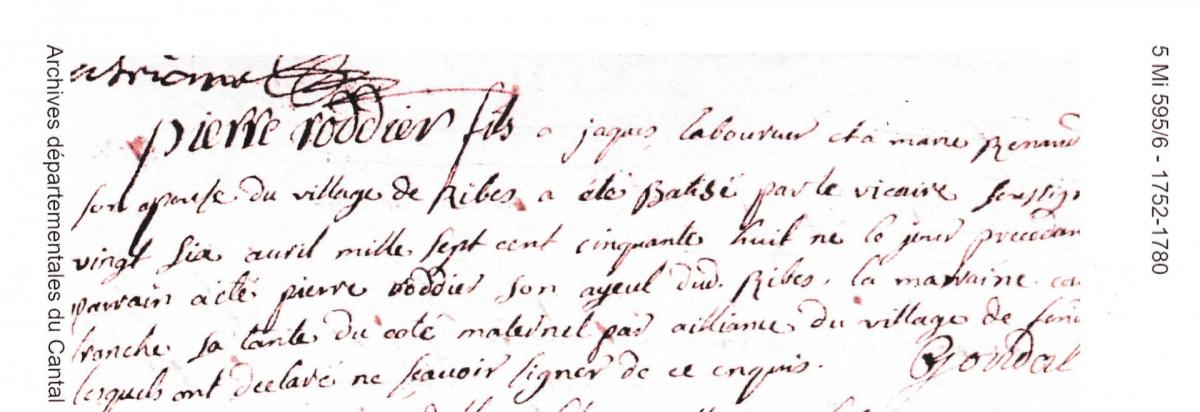 Pierre roddier fils a jaques laboureur et a marie Renard
son epouse du village de Ribes a été Batisé par le vicaire soussign
vingt six avril mille sept cent cinquante huit né le jour precedan
parrain a été pierre roddier son ayeul dud. Ribes. la marraine
tronche sa tante du coté maternel par alliance du village de
lesquels ont declaré ne sçavoir signer de ce enquis.
5 Mi 595/6 - 1752-1780
Archives départementales du Cantal